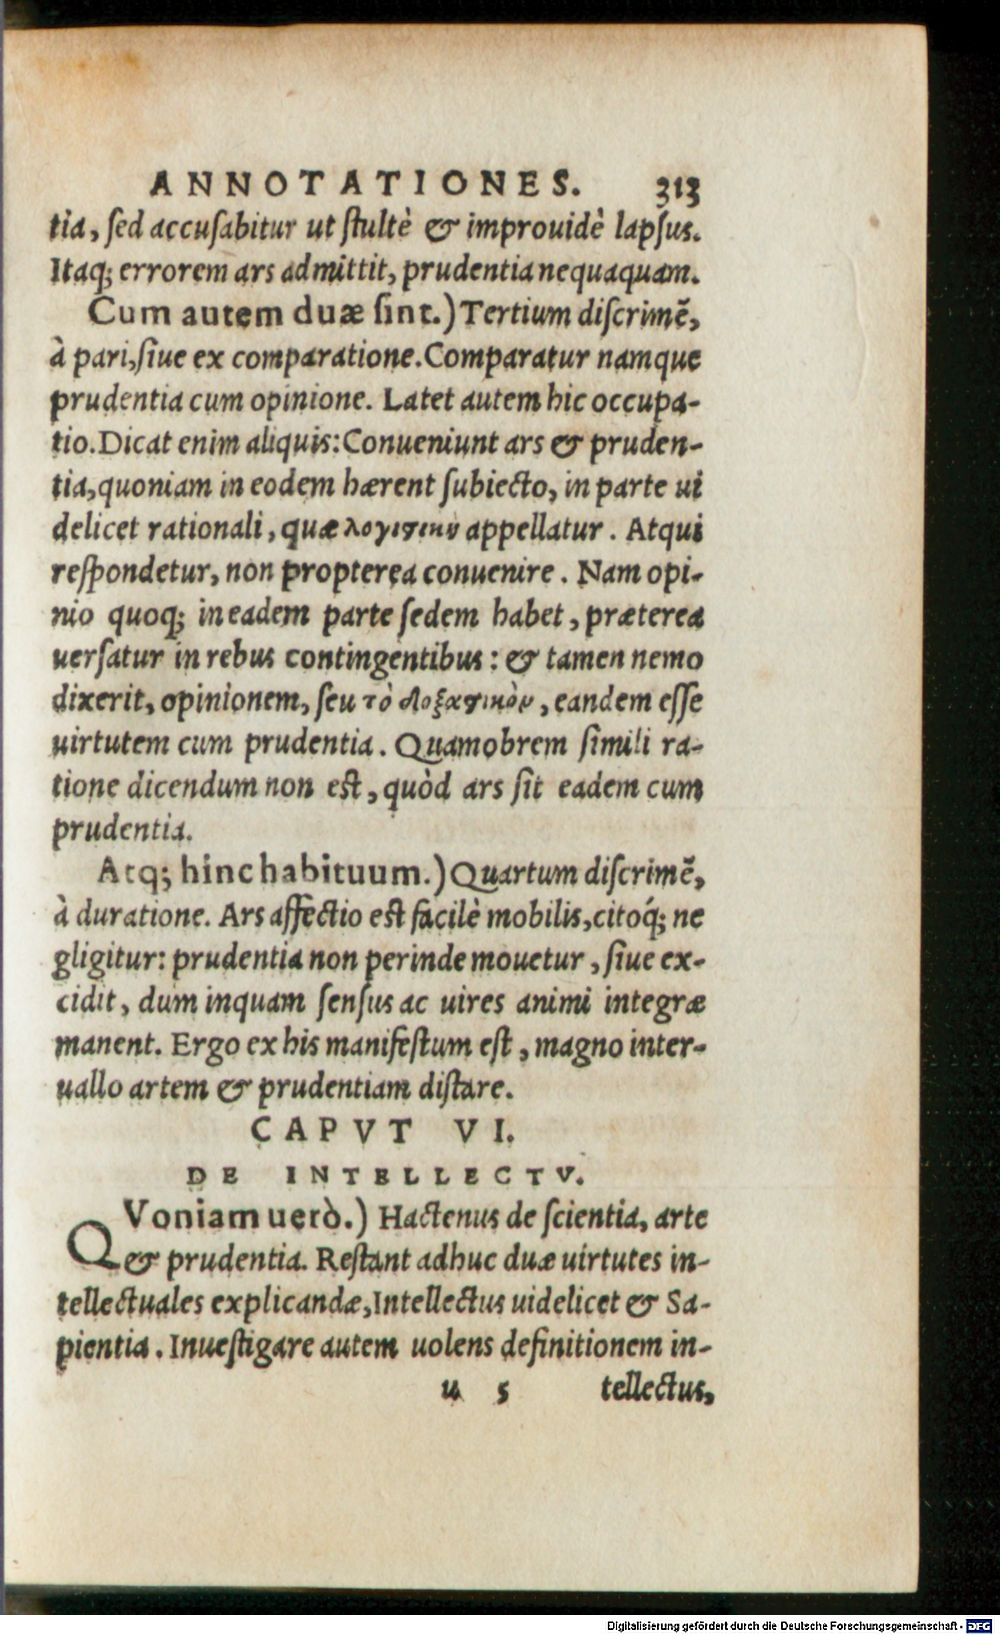 ANNOTATIONES. 313
tia, ſed accuſabitur ut ſtultè & improuidè lapſus.
Itaq; errorem ars admittit, prudentia nequaquam.
Cum autem duæ ſint.) Tertium diſcrimē,
à pari, ſiue ex comparatione. Comparatur namque
prudentia cum opinione. Latet autem hic occupa-
tio. Dicat enim aliquis: Conueniunt ars & pruden-
tia, quoniam in eodem hærent ſubiecto, in parte ui
delicet rationali, quæ λογιστικὸν appellatur. Atqui
reſpondetur, non propterea conuenire. Nam opi-
nio quoq; in eadem parte ſedem habet, præterea
uerſatur in rebus contingentibus: & tamen nemo
dixerit, opinionem, ſeu τὸ δοξαστικὸν, eandem eſſe
uirtutem cum prudentia. Quamobrem ſimili ra-
tione dicendum non est, quòd ars ſit eadem cum
prudentia.
Atq; hinc habituum.) Quartum diſcrimē,
à duratione. Ars affectio est facilè mobilis, citoq́; ne
gligitur: prudentia non perinde mouetur, ſiue ex-
cidit, dum inquam ſenſus ac uires animi integræ
manent. Ergo ex his manifeſtum eſt, magno inter-
uallo artem & prudentiam diſtare.
CAPVT VI.
DE INTELLECTV.
QVoniam uerò.) Hactenus de ſcientia, arte
& prudentia. Reſtant adhuc duæ uirtutes in-
tellectuales explicandæ, Intellectus uidelicet & Sa-
pientia. Inueſtigare autem uolens definitionem in-
u 5 tellectus,
Digitalisierung gefördert durch die Deutsche Forschungsgemeinschaft - DFG